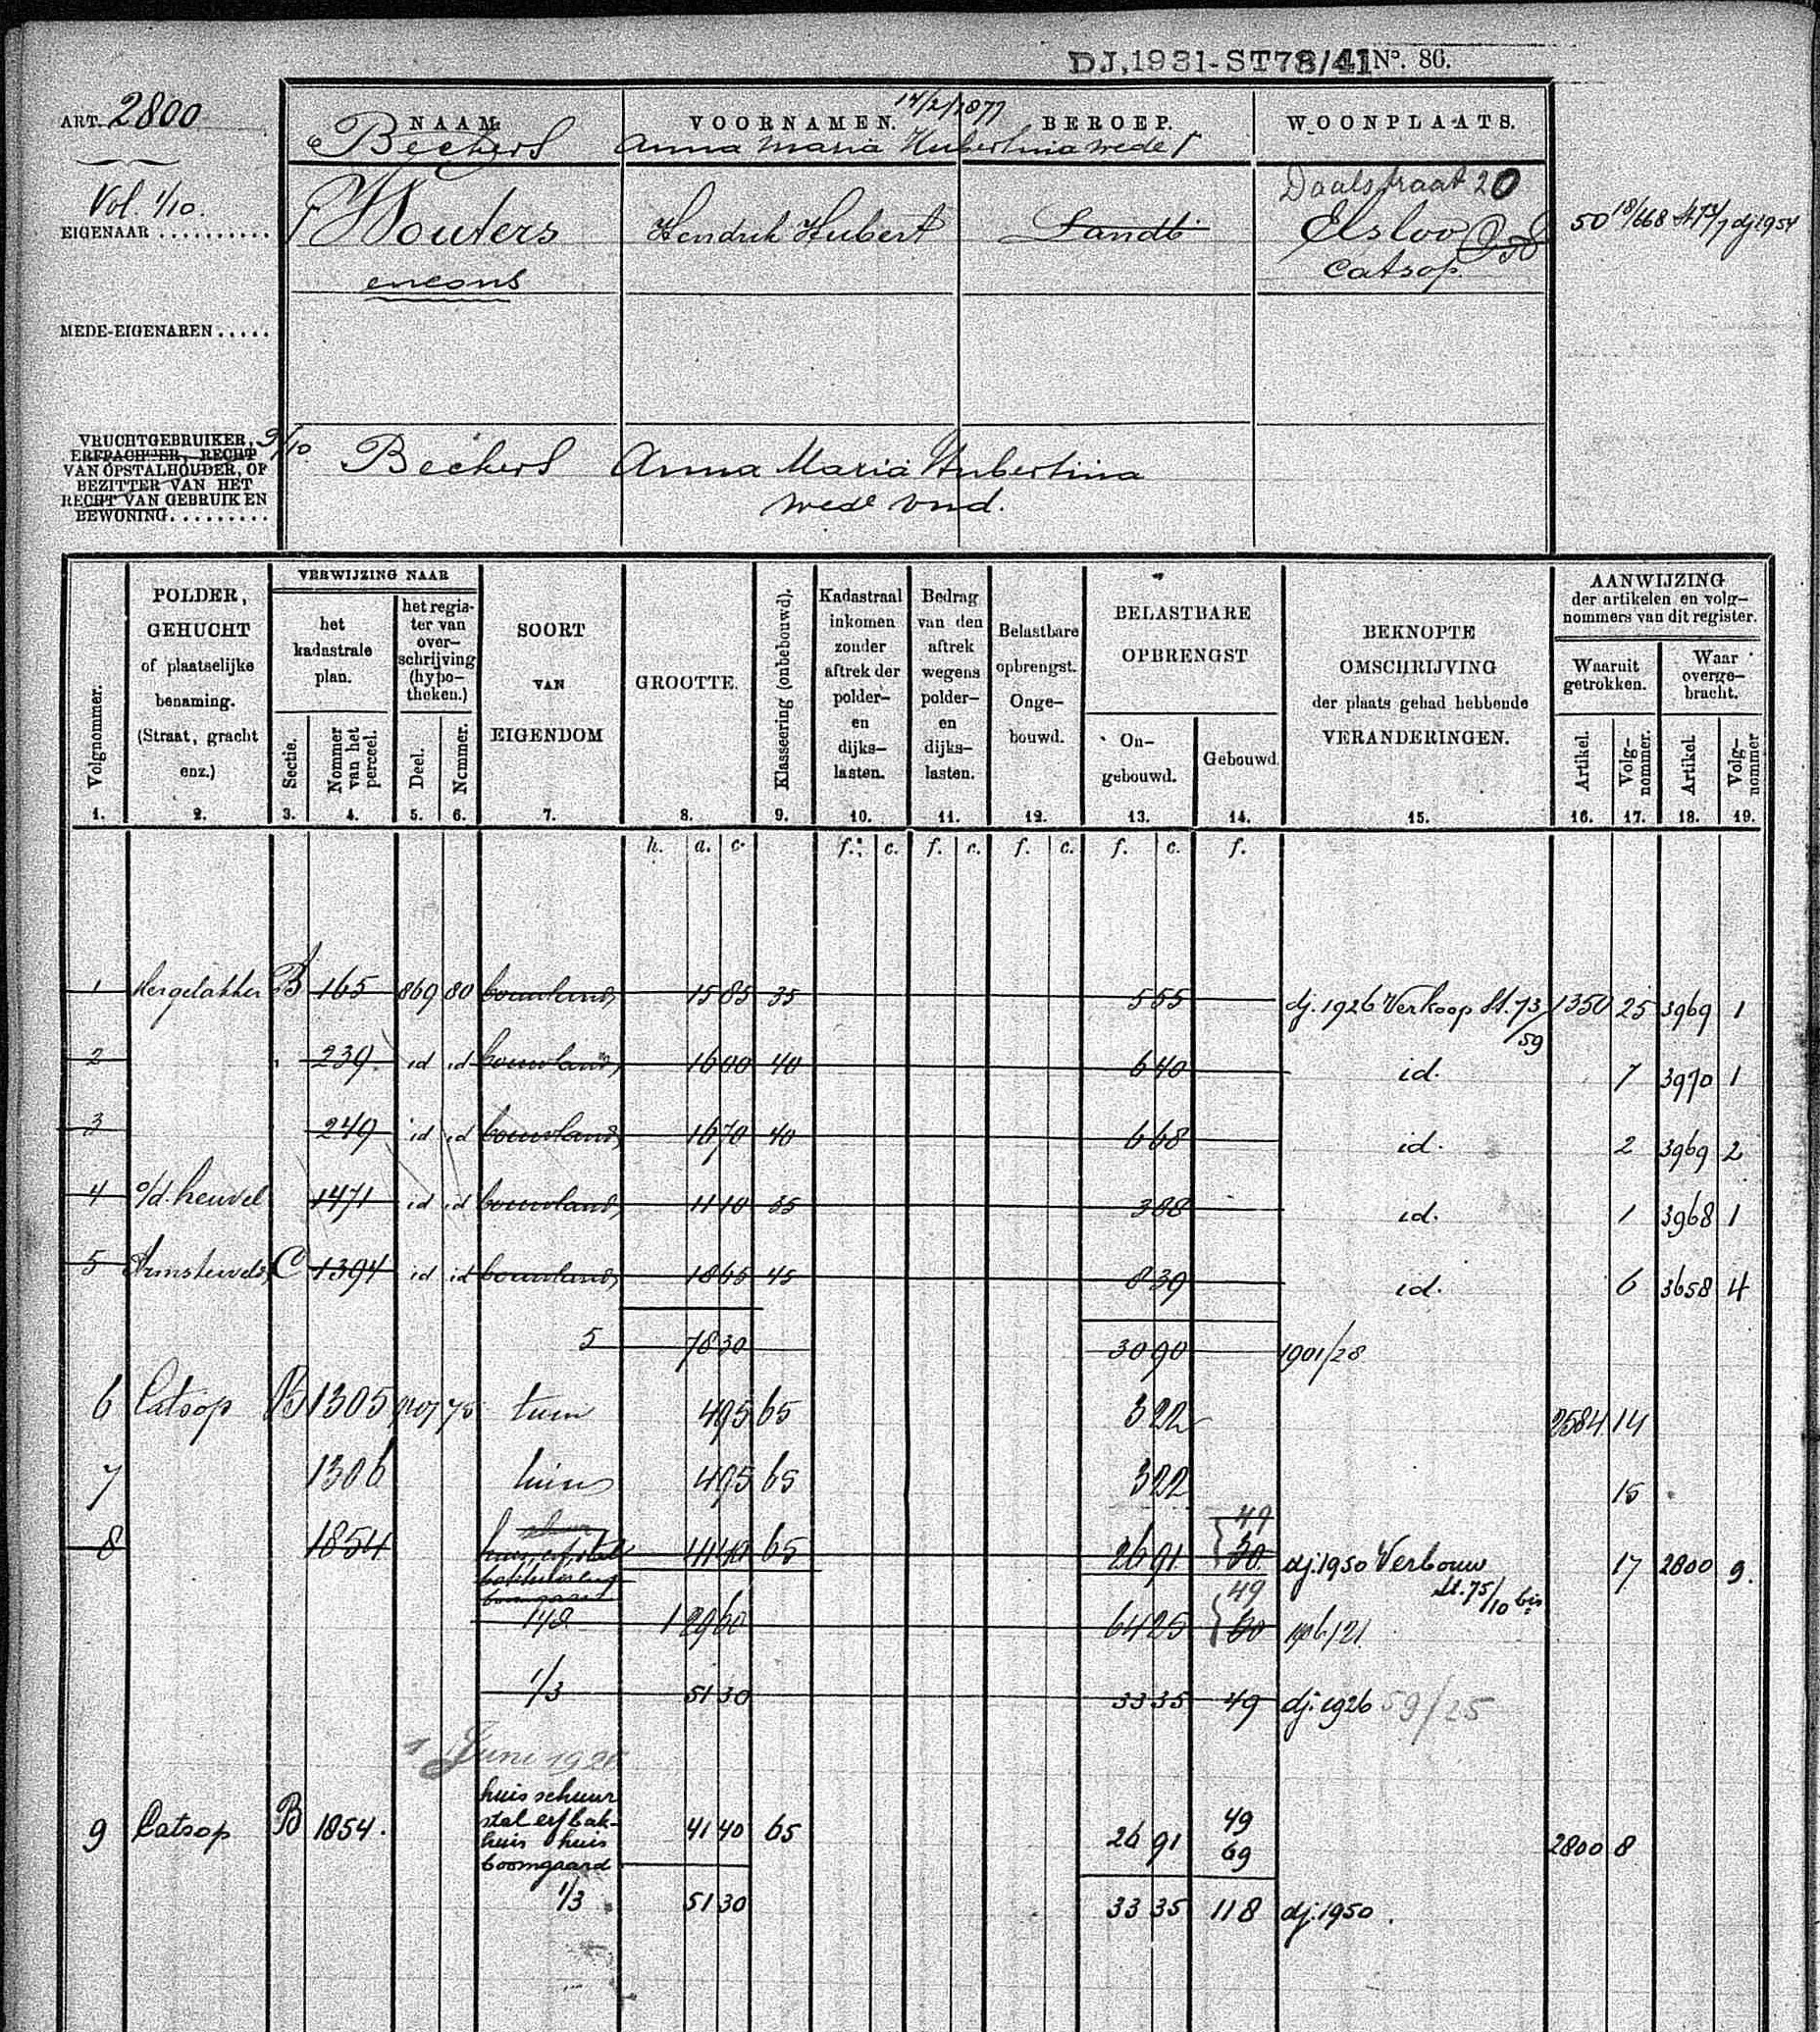 DJ, 1931-ST78/41 No. 86.
ART. 2800
NAAM. VOORNAMEN. 14/2/1877 BEROEP. WOONPLAATS.
Beckers Anna Maria Hubertina wede
Vol. 1/10. Daalstraat 20
EIGENAAR .......... Wouters Hendrik Hubert Landb Elsloo
encons Catsop.
MEDE-EIGENAREN .....
VRUCHTGEBRUIKER, 9/10.
ERFPACHTER, RECHT
VAN OPSTALHOUDER, OF
BEZITTER VAN HET
RECHT VAN GEBRUIK EN
BEWONING.........
Beckers Anna Maria Hubertina
wede vnd.
Volgnommer.
POLDER,
GEHUCHT
of plaatselijke
benaming.
(Straat, gracht
enz.)
VERWIJZING NAAR
het
kadastrale
plan.
Sectie.
Nommer
van het
perceel.
het regis-
ter van
over-
schrijving
(hypo-
theken.)
Deel.
Nommer.
SOORT
VAN
EIGENDOM
GROOTTE.
Klasseering (onbebouwd).
Kadastraal
inkomen
zonder
aftrek der
polder-
en
dijks-
lasten.
Bedrag
van den
aftrek
wegens
polder-
en
dijks-
lasten.
Belastbare
opbrengst.
Onge-
bouwd.
BELASTBARE
OPBRENGST
On-
gebouwd.
Gebouwd.
BEKNOPTE
OMSCHRIJVING
der plaats gehad hebbende
VERANDERINGEN.
AANWIJZING
der artikelen en volg-
nommers van dit register.
Waaruit
getrokken.
Waar
overge-
bracht.
Artikel.
Volg-
nommer.
Artikel.
Volg-
nommer
1. 2. 3. 4. 5. 6. 7. 8. 9. 10. 11. 12. 13. 14. 15. 16. 17. 18. 19.
h. a. c. f. c. f. c. f. c. f. c. f.
1 Mergelakker B 165 869 80 bouwland 15 85 35 5 55 dj. 1926 Verkoop St. 73/59 1350 25 3969 1
2 239 id id bouwland 16 00 40 6 40 id. 7 3970 1
3 249 id id bouwland 16 70 40 6 68 id. 2 3969 2
4 o/d. heuvel 1471 id id bouwland 11 10 35 3 88 id. 1 3968 1
5 C 1394 id id bouwland 18 65 45 8 39 id. 6 3658 4
5 78 30 30 90 1901/28
6 Catsop B 1305 75 tuin 4 95 65 3 22 2584 14
7 1306 tuin 4 95 65 3 22 15
49
8 1854 huis, erf, stal 41 40 65 26 91 30. dj. 1950 Verbouw 17 2800 9.
bakhuis en St. 75/10 bis
boomgaard 49
1 29 60 64 25 60 1906/21
1/3 51 30 33 35 49 dj. 1926 59/25
Juni 1926
9 Catsop B 1854. huis schuur
stal erf bak- 41 40 65 26 91 49 2800 8
huis huis 69
boomgaard
1/3 51 30 33 35 118 dj. 1950.